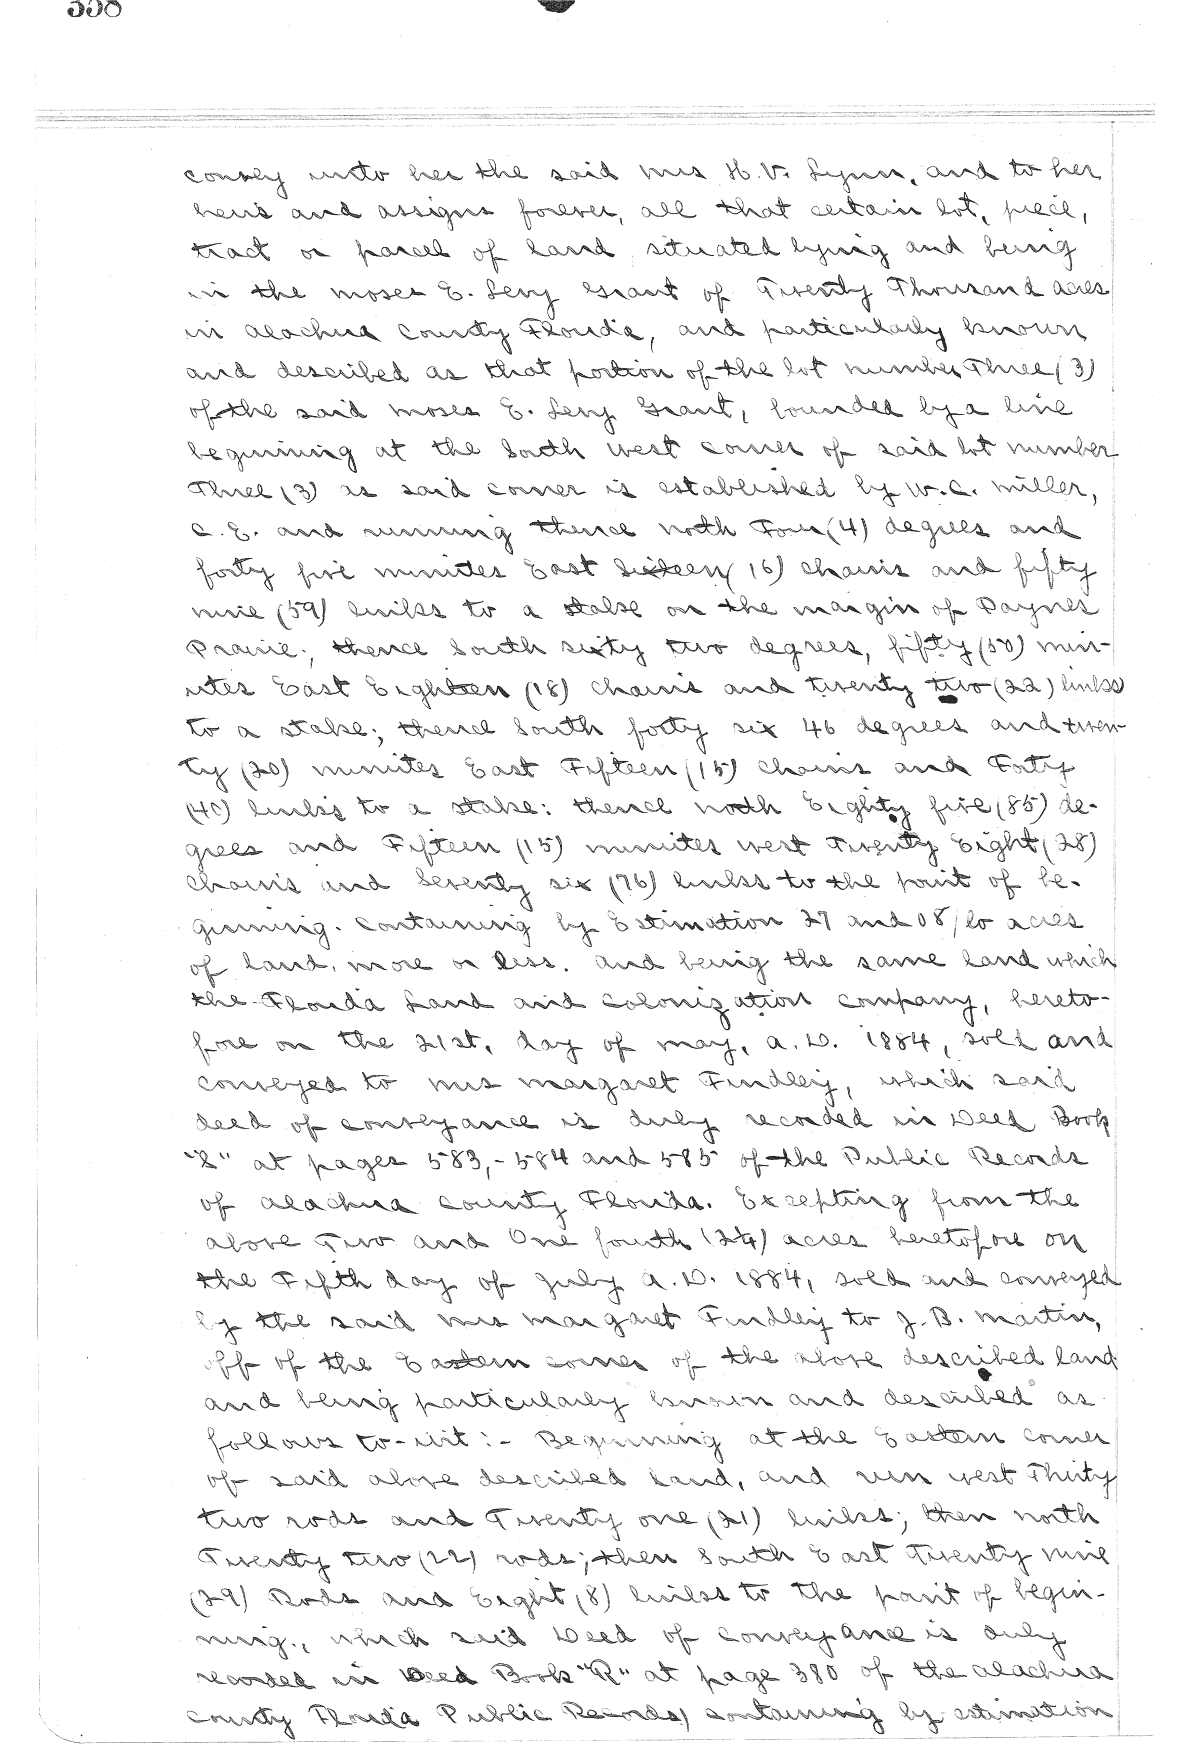 338
convey unto her the said Mrs H. V. Lynn, and to her
heirs and assigns forever, all that certain lot, piece,
tract or parcel of land, situated lying and being
in the Moses E. Levy Grant of Twenty Thousand acres
in Alachua County Florida, and particularly known
and described as that portion of the lot number Three (3)
of the said Moses E. Levy Grant, bounded by a line
beginning at the South west corner of said lot number
Three (3) as said corner is established by W. C. Miller,
C. E. and running thence north Four (4) degrees and
forty five minutes East Sixteen (16) chains and fifty
nine (59) links to a stake on the margin of Paynes
Prairie; thence South sixty two degrees, fifty (50) min-
utes East Eighteen (18) chains and twenty two (22) links
to a stake; thence South forty six 46 degrees and twen-
ty (20) minutes East Fifteen (15) chains and Forty
(40) links to a stake: thence north Eighty five (85) de-
grees and Fifteen (15) minutes west Twenty Eight (28)
chains and Seventy six (76) links to the point of be-
ginning. Containing by Estimation 27 and 08/10 acres
of land, more or less. and being the same land which
the Florida Land and Colonization Company, hereto-
fore on the 21st, day of May, A. D. 1884, sold and
conveyed to Mrs Margaret Findley, which said
deed of conveyance is duly recorded in Deed Book
at pages 583,-584 and 585 of the Public Records
of Alachua County Florida. Excepting from the
above Two and One fourth (2¼) acres heretofore on
the Fifth day of July A. D. 1884, sold and conveyed
by the said Mrs Margaret Findley to J. B. Martin,
off of the Eastern corner of the above described land
and being particularly known and described as
follows to-wit:- Beginning at the Eastern corner
of said above described land, and run west Thirty
two rods and Twenty one (21) links; then north
Twenty two (22) rods; then South East Twenty nine
(29) Rods and Eight (8) links to the point of begin-
ning., which said Deed of conveyance is duly
recorded in Deed Book "R" at page 380 of the Alachua
County Florida Public Records) containing by estimation